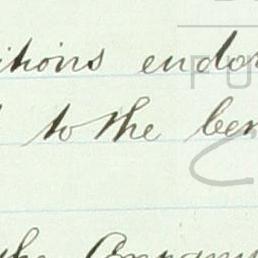 itions endor
to the ben
the Company